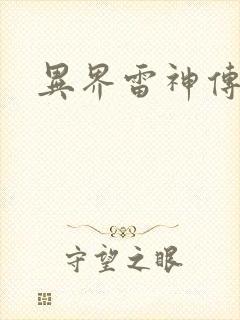 異界雷神傳
守望之眼